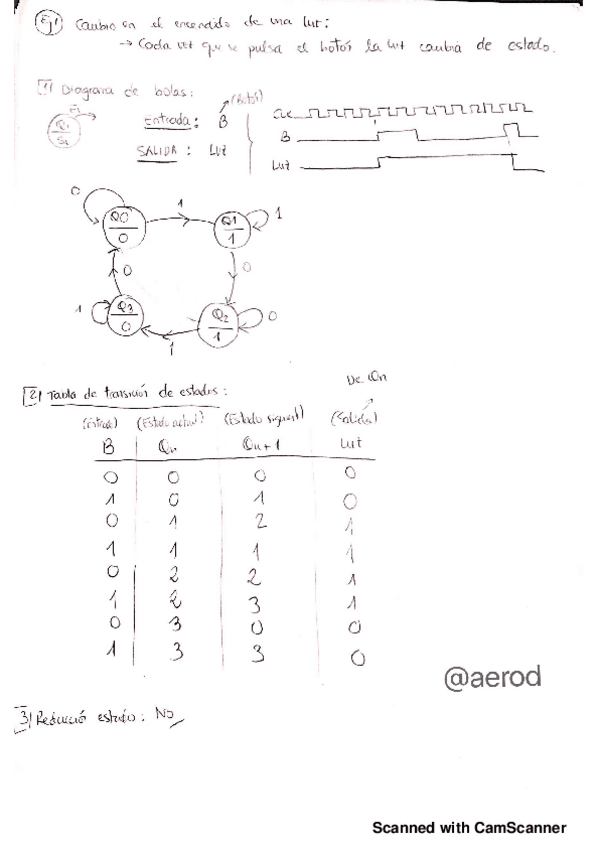 Ej1 Cambio en el encendido de una luz:
→ Cada vez que se pulsa el botón la luz cambia de estado.
1) Diagrama de bolas:
(Botón)
Entrada: B
SALIDA: Luz
B
Luz
Q0
0
Q1
1
Q2
1
Q3
0
0
1
1
0
0
1
1
0
2) Tabla de transición de estados:
De Qn
(Entrada) (Estado actual) (Estado siguient) (Salida)
B Qn Qn+1 Luz
0 0 0 0
1 0 1 0
0 1 2 1
1 1 1 1
0 2 2 1
1 2 3 1
0 3 0 0
1 3 3 0
@aerod
3) Reducció estado: No
Scanned with CamScanner